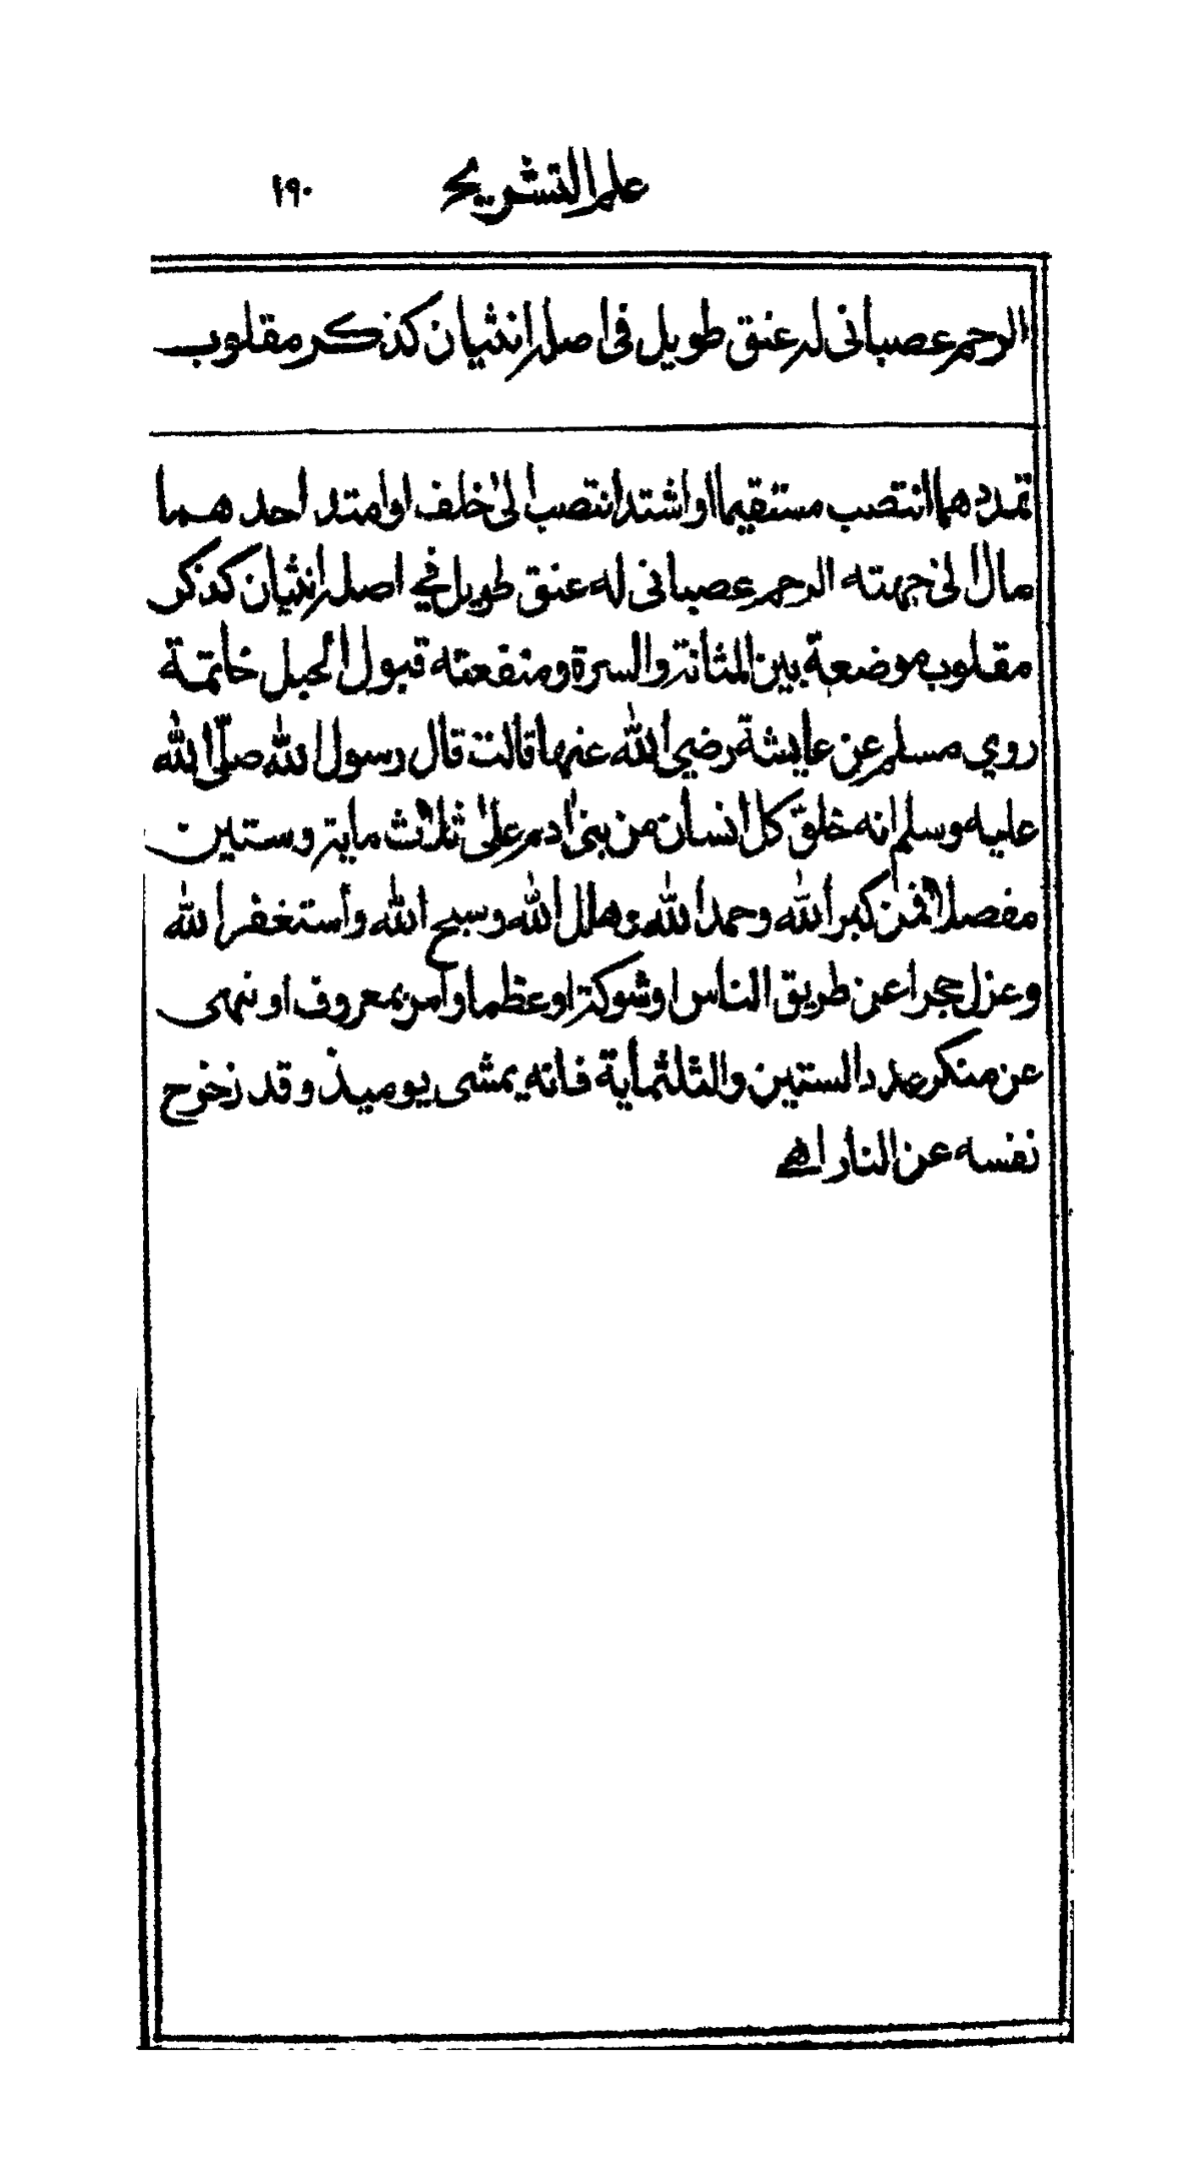 علم التشريح ١٩٠
الرحم عصبانى له عنق طويل فى اصله انثيان كذكر مقلوب
تمددهما انتصب مستقيما او اشتد انتصب الى خلف او امتد احدهما
مال الى جهته الرحم عصبانى له عنق طويل في اصله انثيان كذكر
مقلوب موضعة بين المثانة والسرة ومنفعته قبول الحبل خاتمة
روي مسلم عن عايشة رضي الله عنها قالت قال رسول الله صلى الله
عليه وسلم انه خلق كل انسان من بنى ادم على ثلاث ماية وستين
مفصلا فمن كبر الله وحمد الله وهلل الله وسبح الله وأستغفر الله
وعزل حجرا عن طريق الناس او شوكة او عظما وأمر بمعروف او نهى
عن منكر عدد الستين والثلثماية فانه يمشى يوميذ وقد زخزح
نفسه عن النار اهـ